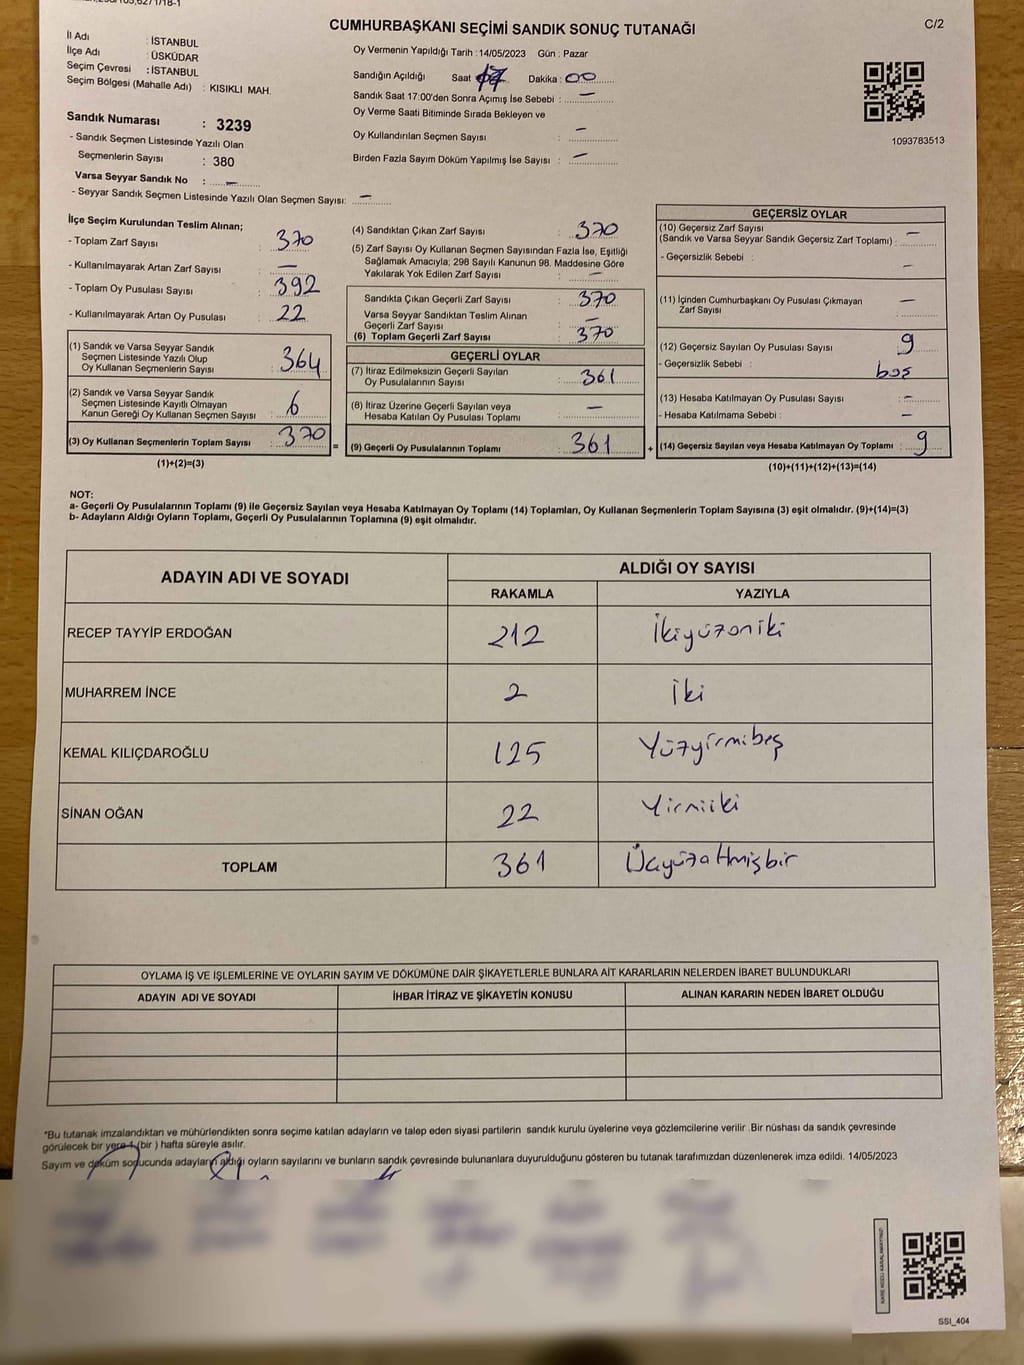 CUMHURBAŞKANI SEÇİMİ SANDIK SONUÇ TUTANAĞI
C/2
İl Adı : İSTANBUL
İlçe Adı : ÜSKÜDAR
Seçim Çevresi : İSTANBUL
Seçim Bölgesi (Mahalle Adı) : KISIKLI MAH.
Sandık Numarası : 3239
- Sandık Seçmen Listesinde Yazılı Olan
Seçmenlerin Sayısı : 380
Varsa Seyyar Sandık No : —
- Seyyar Sandık Seçmen Listesinde Yazılı Olan Seçmen Sayısı: —
Oy Vermenin Yapıldığı Tarih : 14/05/2023 Gün : Pazar
Sandığın Açıldığı Saat 17 Dakika : 00
Sandık Saat 17:00'den Sonra Açımış İse Sebebi : —
Oy Verme Saati Bitiminde Sırada Bekleyen ve
Oy Kullandırılan Seçmen Sayısı : —
Birden Fazla Sayım Döküm Yapılmış İse Sayısı : —
1093783513
İlçe Seçim Kurulundan Teslim Alınan;
- Toplam Zarf Sayısı : 370
- Kullanılmayarak Artan Zarf Sayısı : —
- Toplam Oy Pusulası Sayısı : 392
- Kullanılmayarak Artan Oy Pusulası : 22
(1) Sandık ve Varsa Seyyar Sandık
Seçmen Listesinde Yazılı Olup
Oy Kullanan Seçmenlerin Sayısı : 364
(2) Sandık ve Varsa Seyyar Sandık
Seçmen Listesinde Kayıtlı Olmayan
Kanun Gereği Oy Kullanan Seçmen Sayısı : 6
(3) Oy Kullanan Seçmenlerin Toplam Sayısı : 370
(1)+(2)=(3)
=
(4) Sandıktan Çıkan Zarf Sayısı : 370
(5) Zarf Sayısı Oy Kullanan Seçmen Sayısından Fazla İse, Eşitliği
Sağlamak Amacıyla; 298 Sayılı Kanunun 98. Maddesine Göre
Yakılarak Yok Edilen Zarf Sayısı : —
Sandıkta Çıkan Geçerli Zarf Sayısı : 370
Varsa Seyyar Sandıktan Teslim Alınan
Geçerli Zarf Sayısı : —
(6) Toplam Geçerli Zarf Sayısı : 370
GEÇERLİ OYLAR
(7) İtiraz Edilmeksizin Geçerli Sayılan
Oy Pusulalarının Sayısı : 361
(8) İtiraz Üzerine Geçerli Sayılan veya
Hesaba Katılan Oy Pusulaları Toplamı : —
(9) Geçerli Oy Pusulalarının Toplamı : 361
+
GEÇERSİZ OYLAR
(10) Geçersiz Zarf Sayısı
(Sandık ve Varsa Seyyar Sandık Geçersiz Zarf Toplamı) : —
- Geçersizlik Sebebi : —
(11) İçinden Cumhurbaşkanı Oy Pusulası Çıkmayan
Zarf Sayısı : —
(12) Geçersiz Sayılan Oy Pusulası Sayısı : 9
- Geçersizlik Sebebi : boş
(13) Hesaba Katılmayan Oy Pusulası Sayısı : —
- Hesaba Katılmama Sebebi : —
(14) Geçersiz Sayılan veya Hesaba Katılmayan Oy Toplamı : 9
(10)+(11)+(12)+(13)=(14)
NOT:
a- Geçerli Oy Pusulalarının Toplamı (9) ile Geçersiz Sayılan veya Hesaba Katılmayan Oy Toplamı (14) Toplamları, Oy Kullanan Seçmenlerin Toplam Sayısına (3) eşit olmalıdır. (9)+(14)=(3)
b- Adayların Aldığı Oyların Toplamı, Geçerli Oy Pusulalarının Toplamına (9) eşit olmalıdır.
ADAYIN ADI VE SOYADI ALDIĞI OY SAYISI
RAKAMLA YAZIYLA
RECEP TAYYİP ERDOĞAN 212 İkiyüzoniki
MUHARREM İNCE 2 İki
KEMAL KILIÇDAROĞLU 125 Yüzyirmibeş
SİNAN OĞAN 22 Yirmiiki
TOPLAM 361 Üçyüzaltmışbir
OYLAMA İŞ VE İŞLEMLERİNE VE OYLARIN SAYIM VE DÖKÜMÜNE DAİR ŞİKAYETLERLE BUNLARA AİT KARARLARIN NELERDEN İBARET BULUNDUKLARI
ADAYIN ADI VE SOYADI İHBAR İTİRAZ VE ŞİKAYETİN KONUSU ALINAN KARARIN NEDEN İBARET OLDUĞU
*Bu tutanak imzalandıktan ve mühürlendikten sonra seçime katılan adayların ve talep eden siyasi partilerin sandık kurulu üyelerine veya gözlemcilerine verilir .Bir nüshası da sandık çevresinde
görülecek bir yere 1 (bir ) hafta süreyle asılır.
Sayım ve döküm sonucunda adayların aldığı oyların sayılarını ve bunların sandık çevresinde bulunanlara duyurulduğunu gösteren bu tutanak tarafımızdan düzenlenerek imza edildi. 14/05/2023
SSI_404